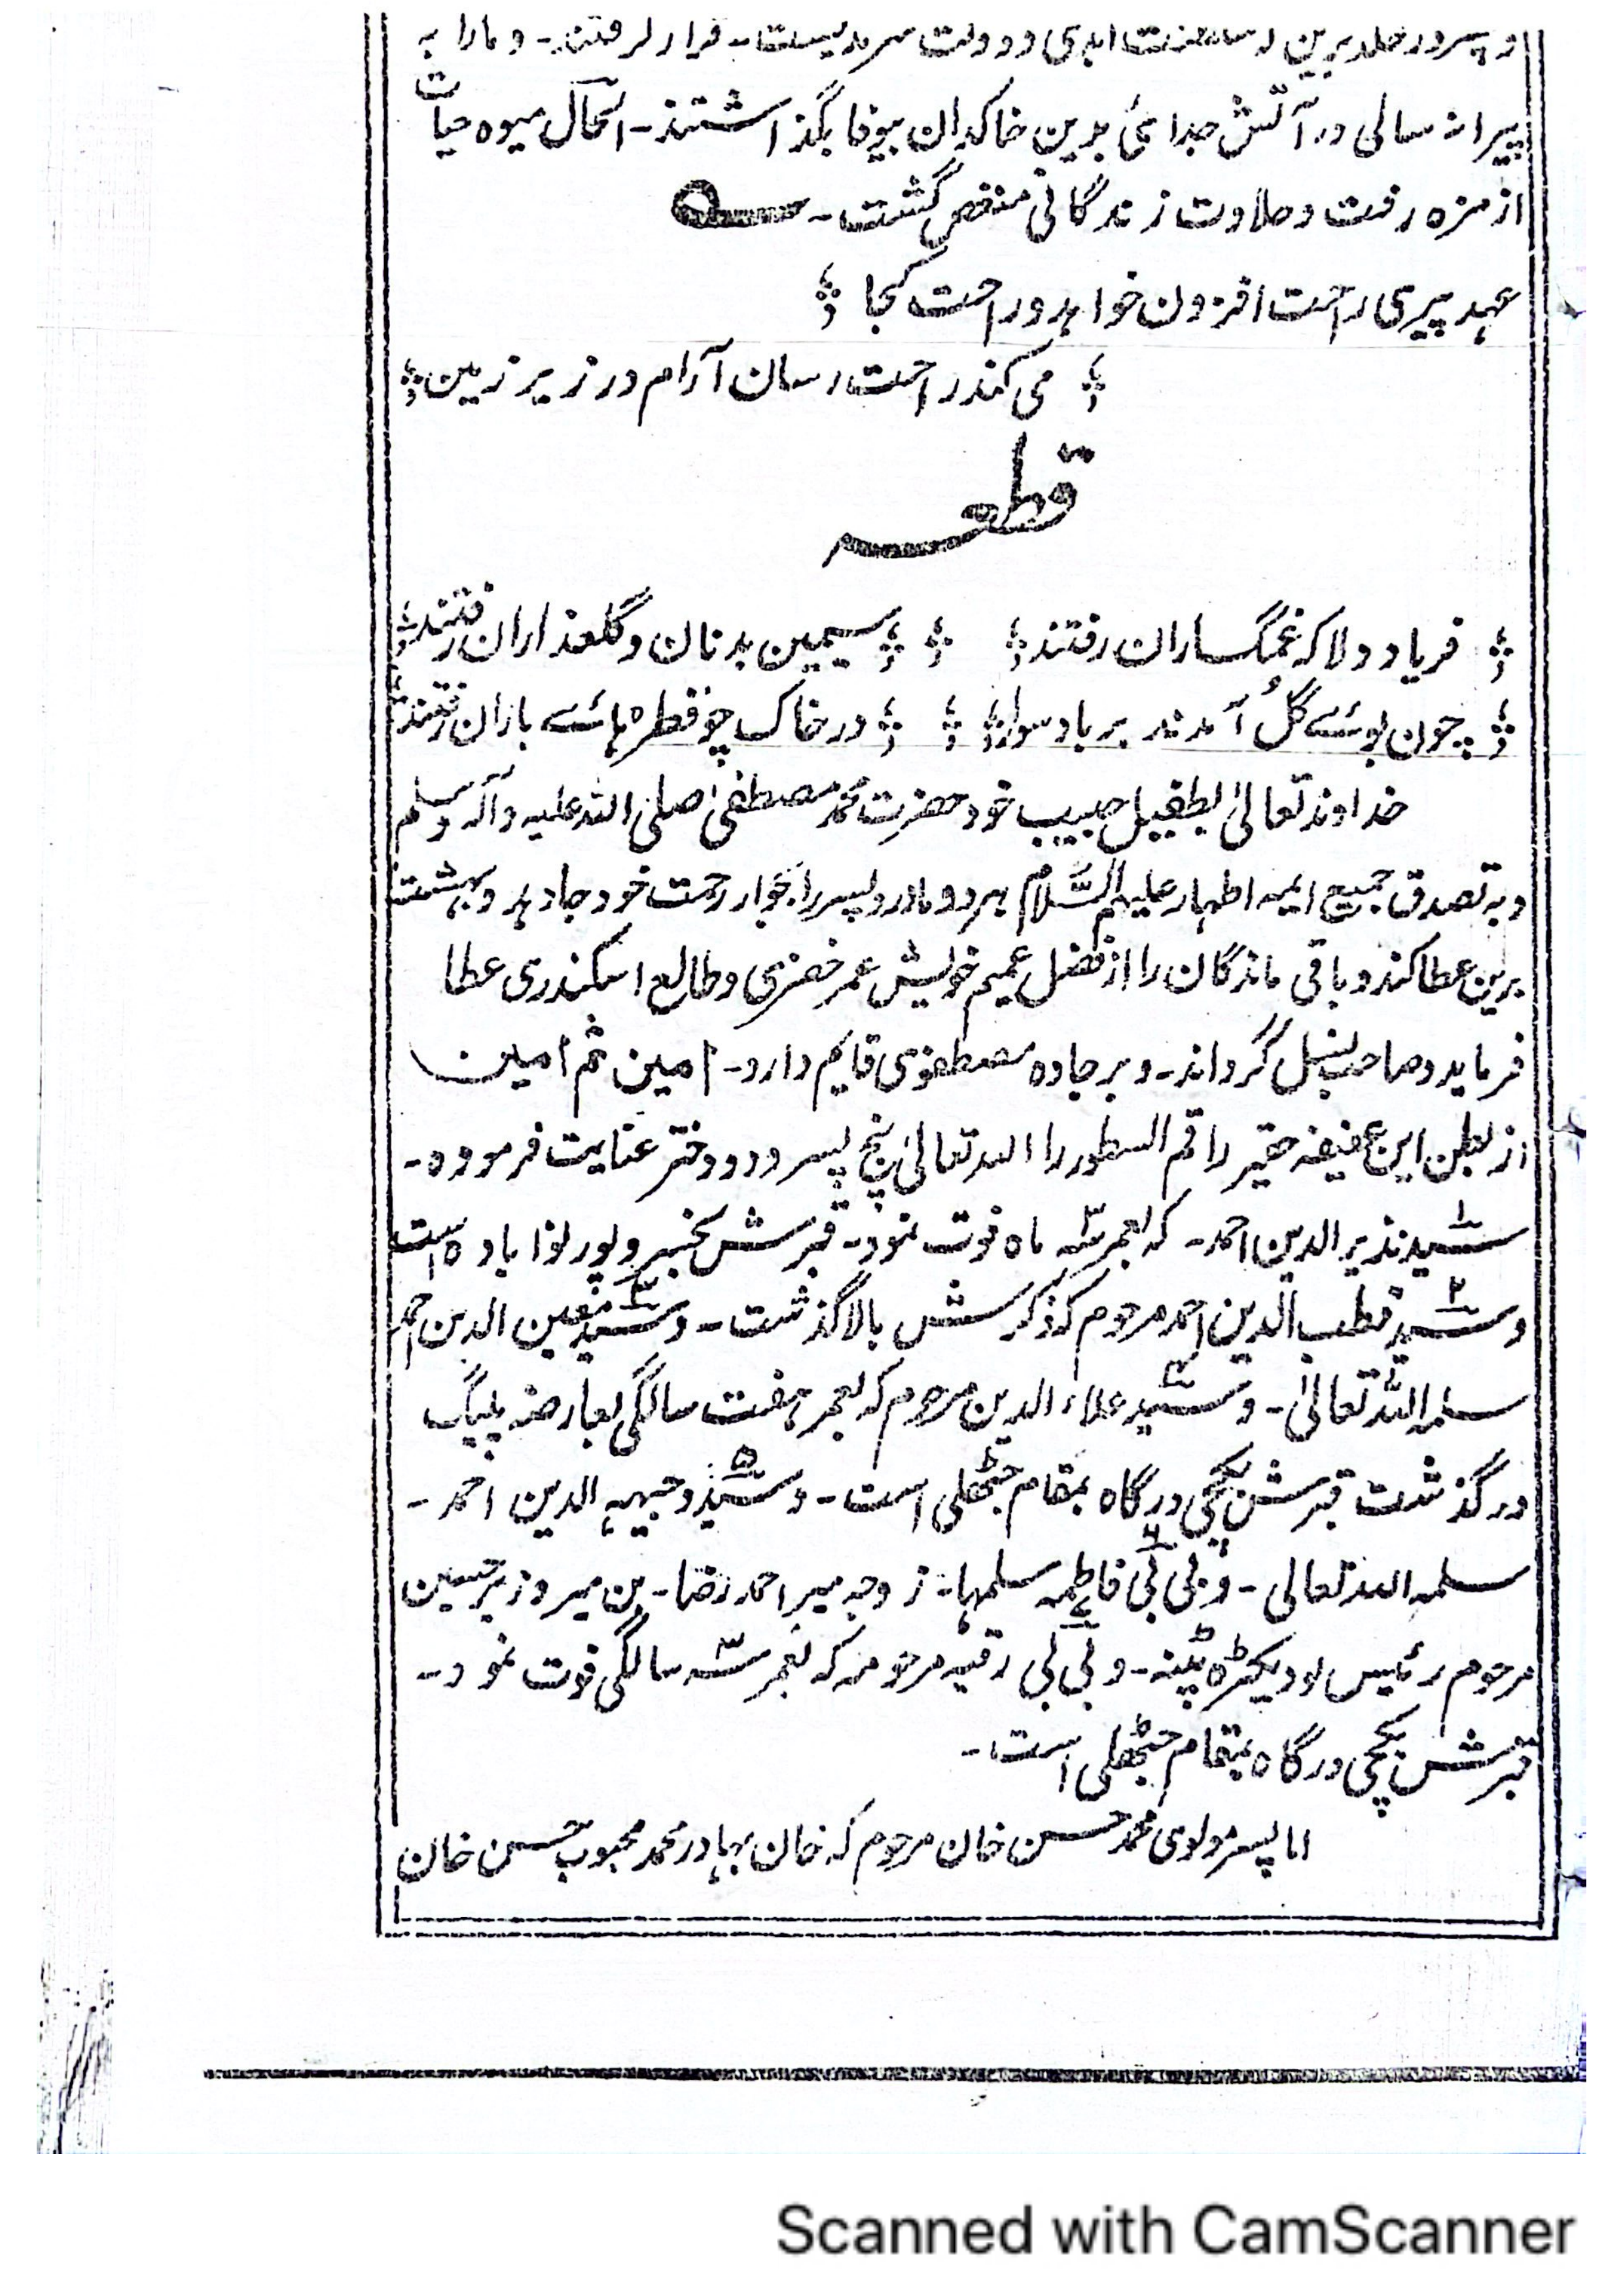 و پسر در خلد برین و سلطنت ابدی و دولت سرمدیست۔ قرار گرفتند۔ و مارا به
پیرانہ سالی در آتش جدائی بدین خاکدان بیوفا بگذاشتند۔ الحال میوہ حیات
از مزہ رفت و حلاوت زندگانی منغص گشت۔
عہد پیری راحت افزون خواہد و راحت کجا
می کند راحت رسان آرام در زیر زمین
قطعہ
فریاد دلا کہ غمگساران رفتند سیمین بدنان و گلعذاران رفتند
چون بوئے گُل آمدند بر باد سوار در خاک چو قطرہ ہائے باران رفتند
خداوند تعالیٰ بطفیل حبیب خود حضرت محمد مصطفیٰ صلی اللہ علیہ وآلہ وسلم
و بہ تصدق جمیع ایمہ اطہار علیہم السَّلام ہر دو مادر و پسر را بجوار رحمت خود جا دہد و بہشت
برین عطا کند و باقی ماندگان را از فضل عمیم خویش عمر خضری و طالع اسکندری عطا
فرماید و صاحب نسل گرداند۔ و بر جادہ مصطفوی قایم دارد۔ امین ثم امین
از بطن این عفیفہ حقیر راقم السطور را اللہ تعالیٰ پنج پسر و دو دختر عنایت فرمودہ۔
۱ سید نذیر الدین احمد۔ کہ بعمر سہ ۳ ماہ فوت نمود۔ قبرش بخسروپور نوادہ است
و ۲ سید قطب الدین احمد مرحوم کہ ذکرش بالا گذشت۔ و ۳ سید معین الدین احمد
سلمہ اللہ تعالیٰ۔ و ۴ سید علاء الدین مرحوم کہ بعمر ہفت سالگی بعارضہ پلیگ
درگذشت قبرش بکچی درگاہ بمقام جٹھلی است۔ و ۵ سید وجیہہ الدین احمد۔
سلمہ اللہ تعالی۔ و ۶ بی بی فاطمہ سلمہا۔ زوجہ میر احمد رضا۔ بن میر وزیر حسین
مرحوم رئیس لودیکٹرہ پٹنہ۔ و ۷ بی بی رقیہ مرحومہ کہ بعمر سہ ۳ سالگی فوت نمود۔
قبرش بکچی درگاہ بمقام جٹھلی است۔
اما پسر مولوی محمد حسن خان مرحوم کہ خان بہادر محمد محبوب حسن خان
Scanned with CamScanner